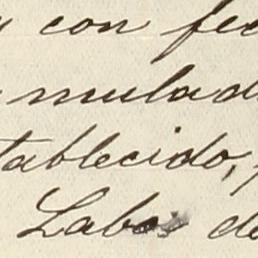 y con fec
mulad
tablecido,
Labos de